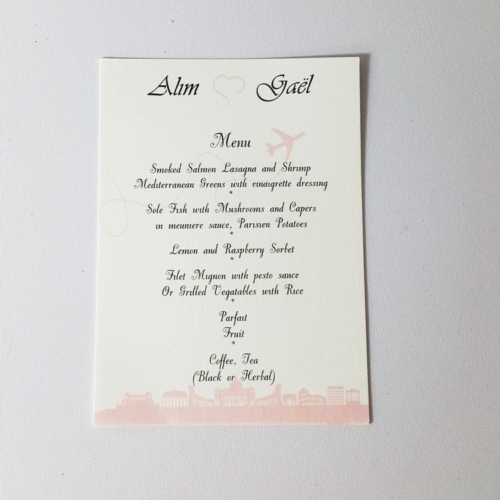 Alim Gaël
Menu
Smoked Salmon Lasagna and Shrimp
Mediterranean Greens with vinaigrette dressing
*
Sole Fish with Mushrooms and Capers
in meuniere sauce, Parisien Potatoes
*
Lemon and Raspberry Sorbet
*
Filet Mignon with pesto sauce
Or Grilled Vegatables with Rice
*
Parfait
Fruit
*
Coffee, Tea
(Black or Herbal)